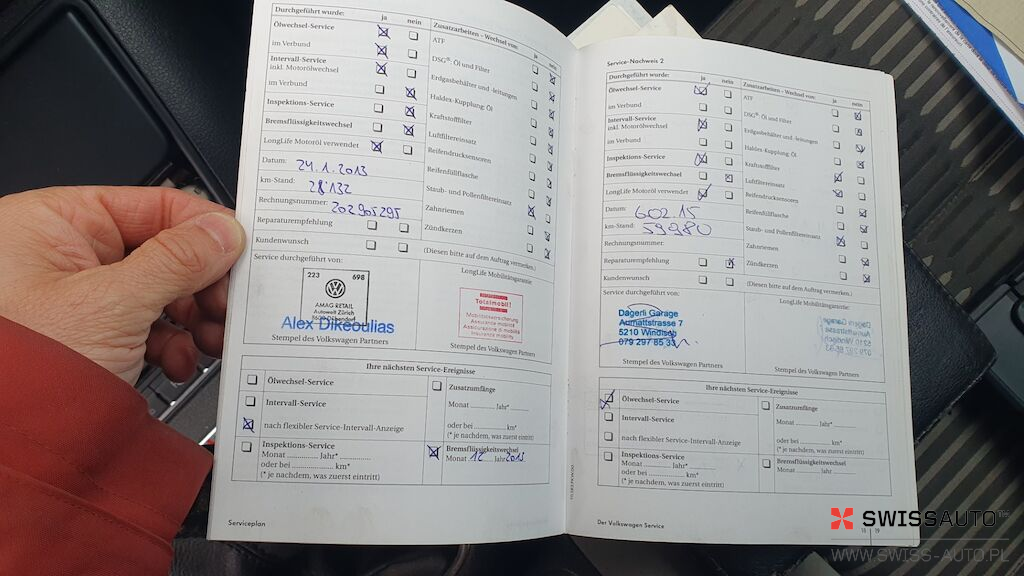 Durchgeführt wurde: ja nein
Ölwechsel-Service
im Verbund
Intervall-Service
inkl. Motorölwechsel
im Verbund
Inspektions-Service
Bremsflüssigkeitswechsel
LongLife Motoröl verwendet
Datum: 24.1.2013
km-Stand: 28'132
Rechnungsnummer: 202905295
Reparaturempfehlung
Kundenwunsch
Zusatzarbeiten – Wechsel von: ja nein
ATF
DSG®: Öl und Filter
Erdgasbehälter und -leitungen
Haldex-Kupplung: Öl
Kraftstofffilter
Luftfiltereinsatz
Reifendrucksensoren
Reifenfüllflasche
Staub- und Pollenfiltereinsatz
Zahnriemen
Zündkerzen
(Diesen bitte auf dem Auftrag vermerken.)
Service durchgeführt von:
223 698
AMAG RETAIL
Autowelt Zürich
Alex Dikeoulias
Stempel des Volkswagen Partners
LongLife Mobilitätsgarantie:
Totalmobil!
Mobilitätsversicherung
Assurance mobilité
Assicurazione di mobilità
Insurance mobility
Stempel des Volkswagen Partners
Ihre nächsten Service-Ereignisse
Ölwechsel-Service
Intervall-Service
nach flexibler Service-Intervall-Anzeige
Inspektions-Service
Monat Jahr*
oder bei km*
(* je nachdem, was zuerst eintritt)
Zusatzumfänge
Monat Jahr*
oder bei km*
(* je nachdem, was zuerst eintritt)
Bremsflüssigkeitswechsel
Monat 12 Jahr 2013
Serviceplan
Service-Nachweis 2
Durchgeführt wurde: ja nein
Ölwechsel-Service
im Verbund
Intervall-Service
inkl. Motorölwechsel
im Verbund
Inspektions-Service
Bremsflüssigkeitswechsel
LongLife Motoröl verwendet
Datum: 6.02.15
km-Stand: 59980
Rechnungsnummer:
Reparaturempfehlung
Kundenwunsch
Zusatzarbeiten – Wechsel von: ja nein
ATF
DSG®: Öl und Filter
Erdgasbehälter und -leitungen
Haldex-Kupplung: Öl
Kraftstofffilter
Luftfiltereinsatz
Reifendrucksensoren
Reifenfüllflasche
Staub- und Pollenfiltereinsatz
Zahnriemen
Zündkerzen
(Diesen bitte auf dem Auftrag vermerken.)
Service durchgeführt von:
Dägerli Garage
Aumattstrasse 7
5210 Windisch
079 297 85 33
Stempel des Volkswagen Partners
LongLife Mobilitätsgarantie:
Stempel des Volkswagen Partners
Ihre nächsten Service-Ereignisse
Ölwechsel-Service
Intervall-Service
nach flexibler Service-Intervall-Anzeige
Inspektions-Service
Monat Jahr*
oder bei km*
(* je nachdem, was zuerst eintritt)
Zusatzumfänge
Monat Jahr*
oder bei km*
(* je nachdem, was zuerst eintritt)
Bremsflüssigkeitswechsel
Monat Jahr
Der Volkswagen Service
18 19
SWISSAUTO
WWW.SWISS-AUTO.PL